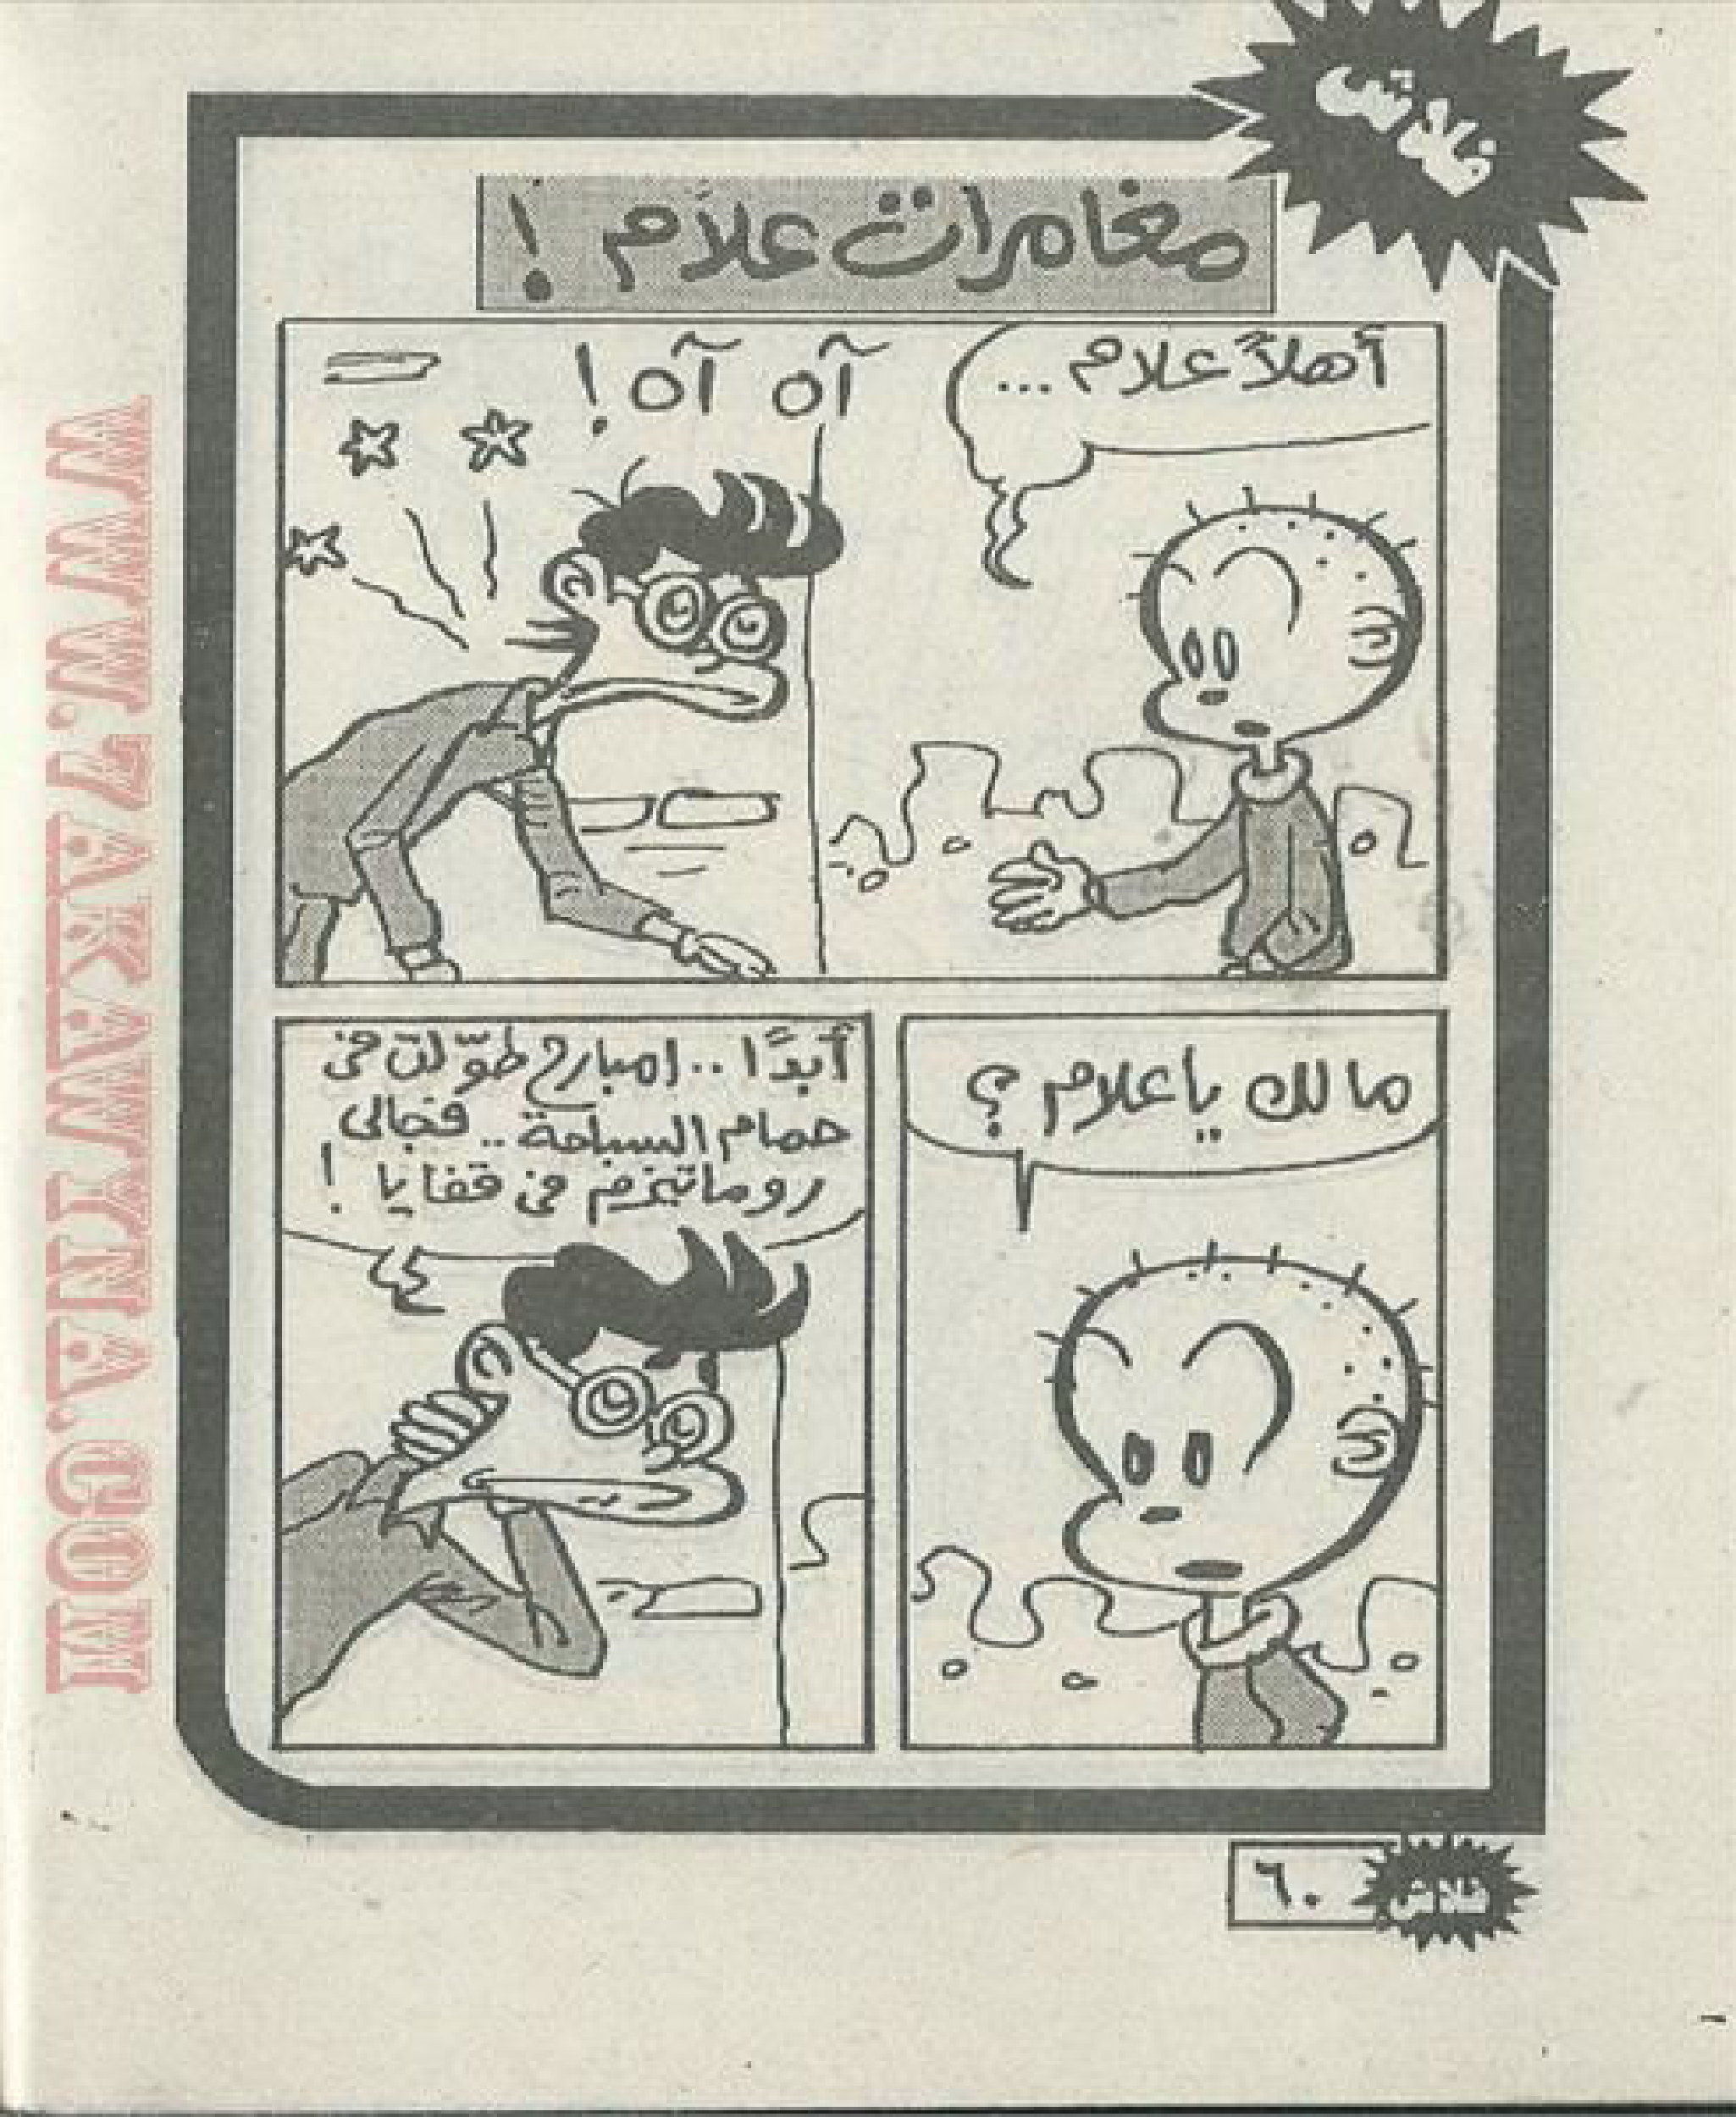 فلاش
مغامرات علام !
أهلاً علام ...
آه آه آه !
مالك يا علام ؟
أبدًا .. امبارح طوّلت فى
حمام السباحة .. فجالى
روماتيزم فى قفايا !
٦٠
فلاش
WWW.7AKAWYNA.COM